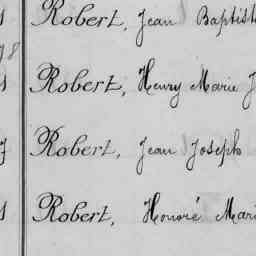 Robert, Jean Baptist
Robert, Henry Marie J
Robert, Jean Joseph
Robert, Honoré Mari